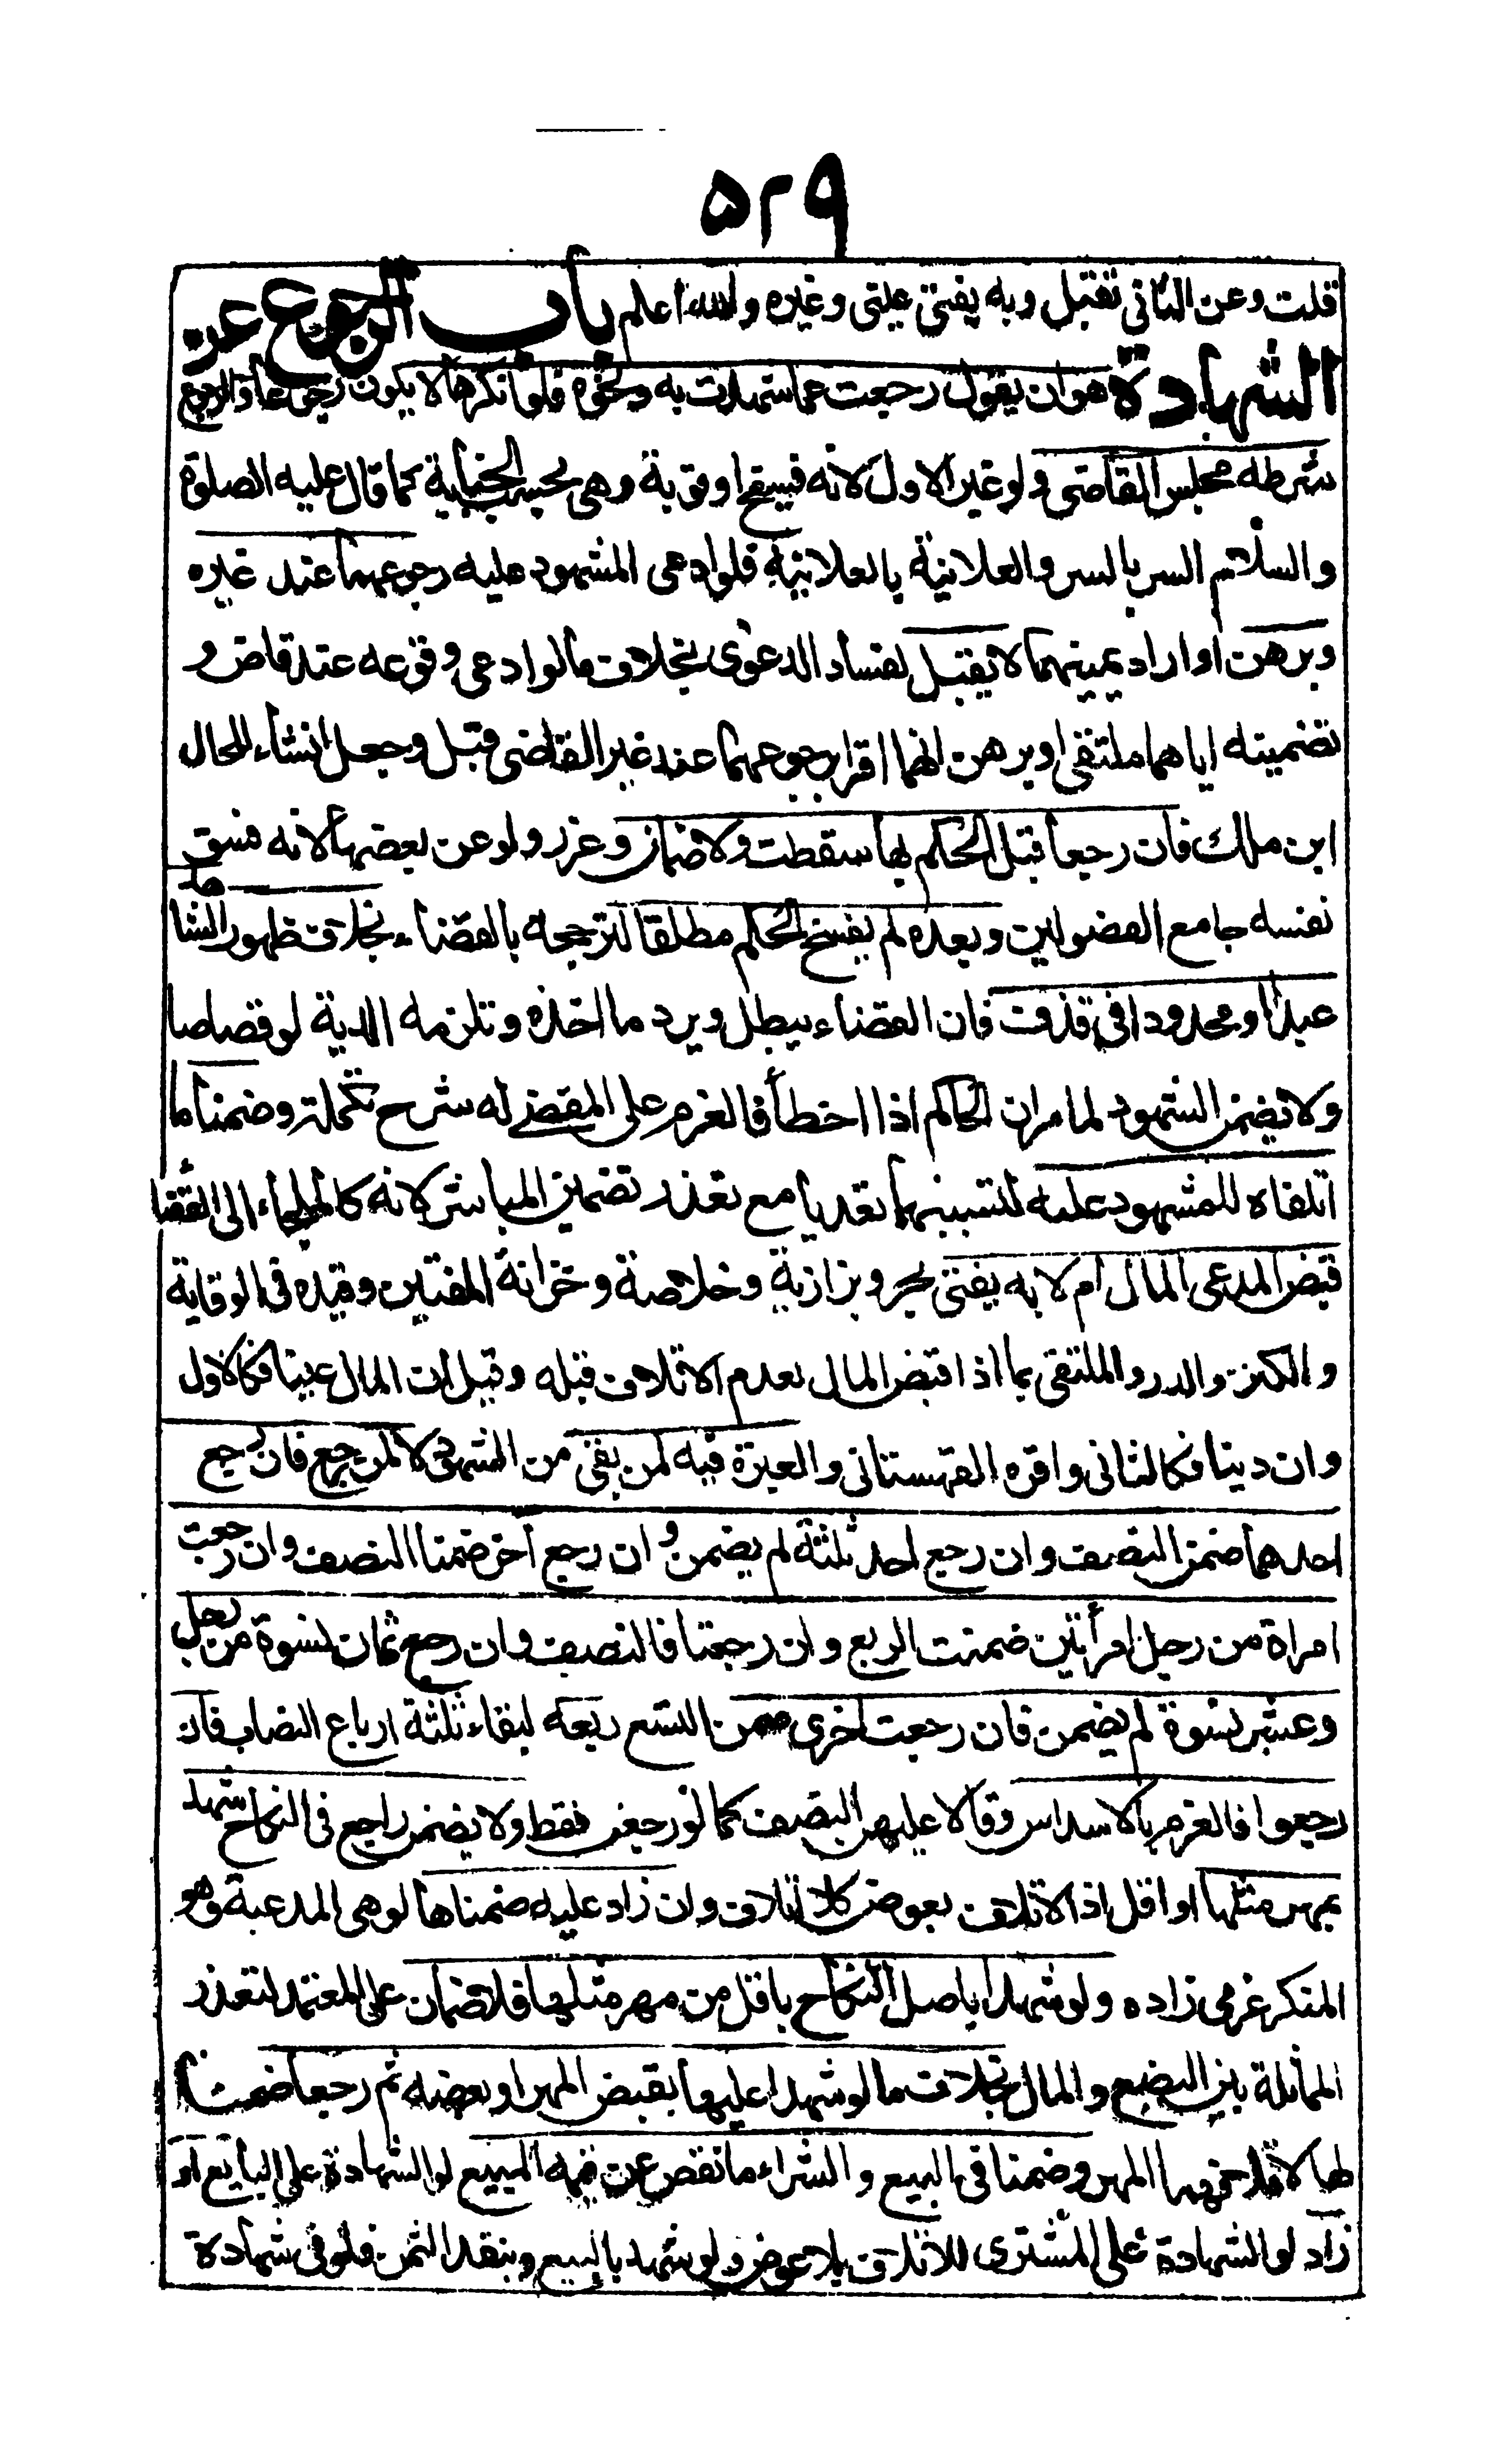 ٥٢٩
قلت وعن الثانى تقبل وبه يفتى عينى وغيره والله اعلم باب الرجوع عن
الشهادة هو ان يقول رجعت عما شهدت به ونحوه فلو انكرها لا يكون رجوعا والرجوع
شرطه مجلس القاضى ولو غير الاول لانه فسخ او توبة وهى بحسب الجناية كما قال عليه الصلوة
والسلام السر بالسر والعلانية بالعلانية فلو ادعى المشهود عليه رجوعهما عند غيره
وبرهن او اراد يمينهما لا يقبل لفساد الدعوى بخلاف ما لو ادعى وقوعه عند قاض و
تضمينه اياهما ملتقى او برهن انهما اقرا برجوعهما عند غير القاضى قبل وجعل انشاء للحال
ابن ملك فان رجعا قبل الحكم بها سقطت ولا ضمان وعزر ولو عن بعضها لانه فسق
نفسه جامع الفصولين وبعده لم يفسخ الحكم مطلقا لترجحه بالقضاء بخلاف ظهور الشاهد
عبدا او محدودا فى قذف فان القضاء يبطل ويرد ما اخذه وتلزمه الدية لو قصاصا
ولا يضمن الشهود لما مر ان الحاكم اذا اخطأ فالغرم على المقضى له شرح تكملة وضمنا ما
اتلفاه للمشهود عليه لتسببهما تعديا مع تعذر تضمين المباشر لانه كالملجاء الى القضا
قبض المدعى المال ام لا به يفتى بحر وبزازية وخلاصة وخزانة المفتين وقيده فى الوقاية
والكنز والدرر والملتقى بما اذا قبض المال لعدم الاتلاف قبله وقيل ان المال عينا فكالاول
وان دينا فكالثانى واقره القهستانى والعبرة فيه لمن بقى من الشهود لا لمن رجع فان رجع
احدهما ضمن النصف وان رجع احد ثلثة لم يضمن وان رجع آخر ضمنا النصف وان رجعت
امراة من رجل وامرأتين ضمنت الربع وان رجعتا فالنصف وان رجع ثمان نسوة من رجل
وعشر نسوة لم يضمن فان رجعت اخرى ضمن التسع ربعه لبقاء ثلثة ارباع النصاب فان
رجعوا فالغرم بالاسداس وقالا عليهن النصف كما لو رجعن فقط ولا يضمن راجع فى النكاح شهد
بمهر مثلها او اقل اذ الاتلاف بعوض كلا اتلاف وان زاد عليه ضمناها لو هى المدعية وهو
المنكر عزمى زاده ولو شهدا باصل النكاح باقل من مهر مثلها فلا ضمان على المعتمد لتعذر
المماثلة بين البضع والمال بخلاف ما لو شهدا عليها بقبض المهر او بعضه ثم رجعا ضمنا
لها لاتلافهما المهر وضمنا فى البيع والشراء ما نقص عن قيمة المبيع لو الشهادة على البائع او
زاد لو الشهادة على المشترى للاتلاف بلا عوض ولو شهد بالبيع وبنقد الثمن فلو فى شهادة